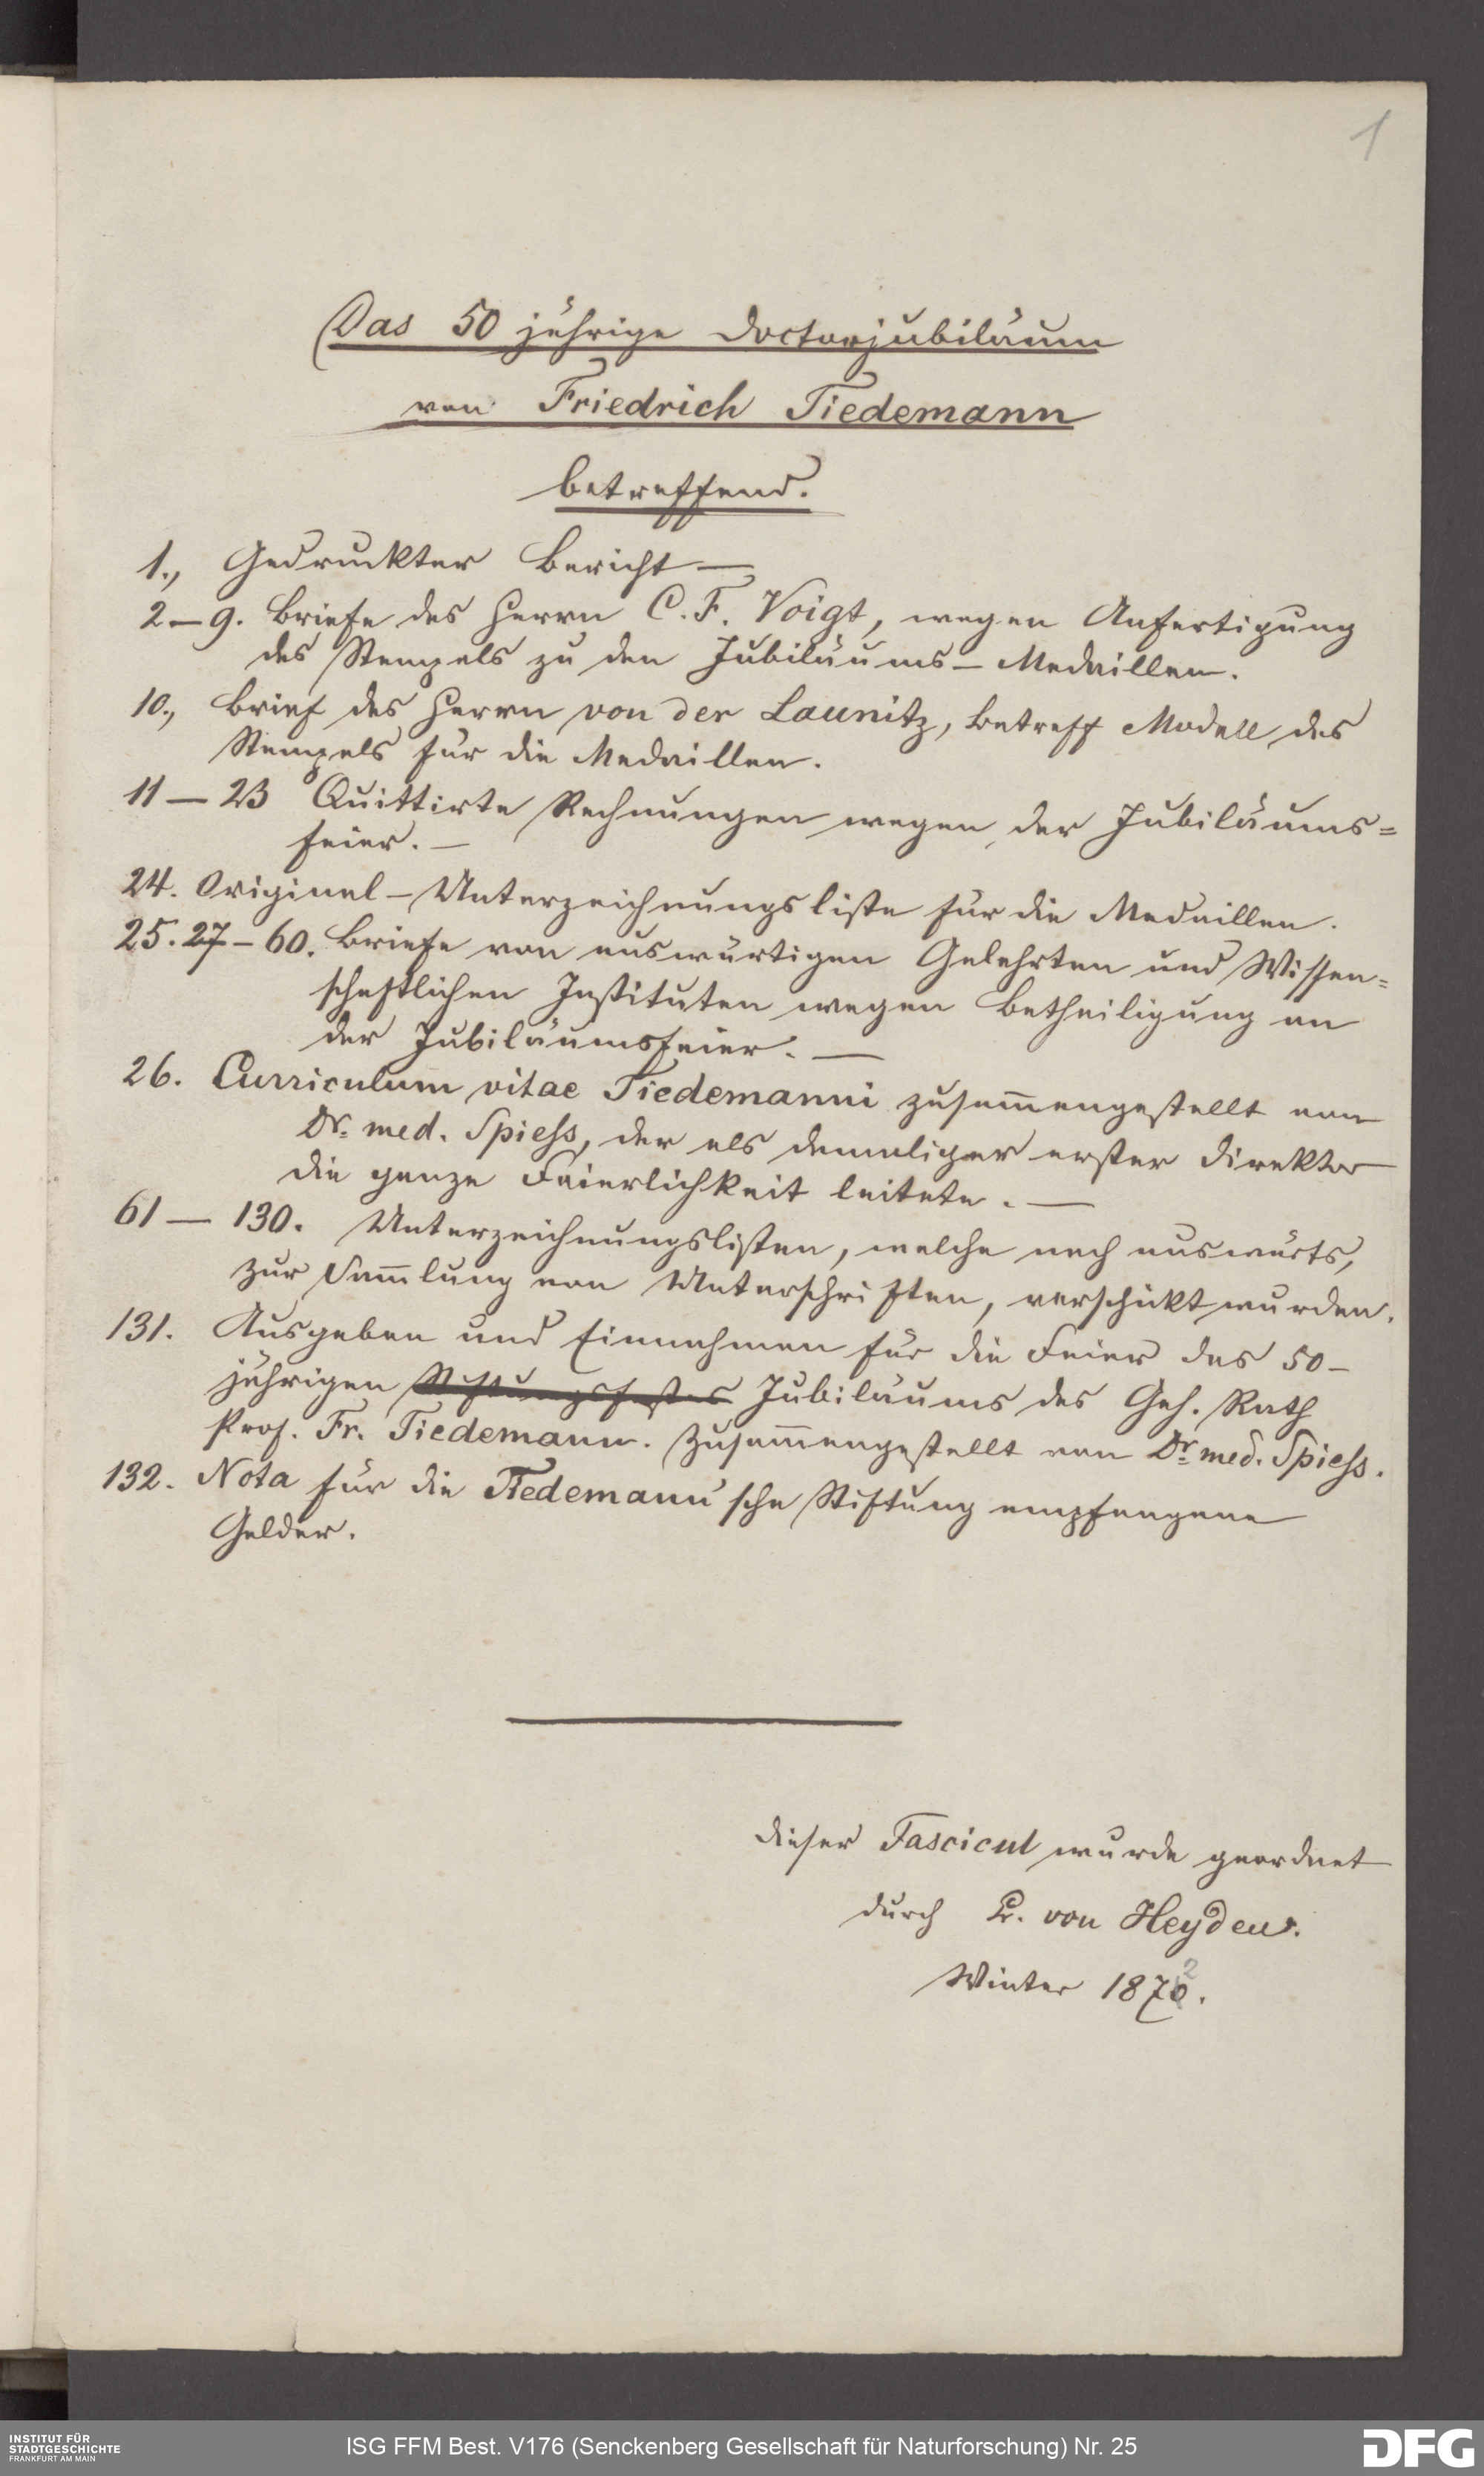 1
Das 50 jährige Doctorjubiläum
von Friedrich Tiedemann
betreffend.
1., Gedruckter Bericht —
2–9. Briefe des Herrn C. F. Voigt, wegen Anfertigung
des Stempels zu den Jubiläums– Medaillen.
10., Brief des Herrn von der Launitz, betreff Modell des
Stempels für die Medaillen.
11 — 23 Quittirte Rechnungen wegen der Jubiläums=
feier. —
24. Original – Unterzeichnungsliste für die Medaillen.
25. 27 – 60. Briefe von auswärtigen Gelehrten und Wissen=
schaftlichen Instituten wegen Betheiligung an
der Jubiläumsfeier. —
26. Curriculum vitae Tiedemanni zusam̄engestellt von
Dr. med. Spiess, der als damaliger erster Direktor
die ganze Feierlichkeit leitete. —
61 — 130. Unterzeichnungslisten, welche nach auswärts,
zur Sam̄lung von Unterschriften, verschickt wurden.
131. Ausgaben und Einnahmen für die Feier des 50–
jährigen Stiftungsfestes Jubiläums des Geh. Rath
Prof. Fr. Tiedemann. Zusam̄engestellt von Dr. med. Spiess.
132. Nota für die Tiedemann'sche Stiftung empfangene
Gelder.
Dieser Fascicul wurde geordnet
durch L. von Heyden.
Winter 1872.
INSTITUT FÜR
STADTGESCHICHTE
FRANKFURT AM MAIN
ISG FFM Best. V176 (Senckenberg Gesellschaft für Naturforschung) Nr. 25
DFG